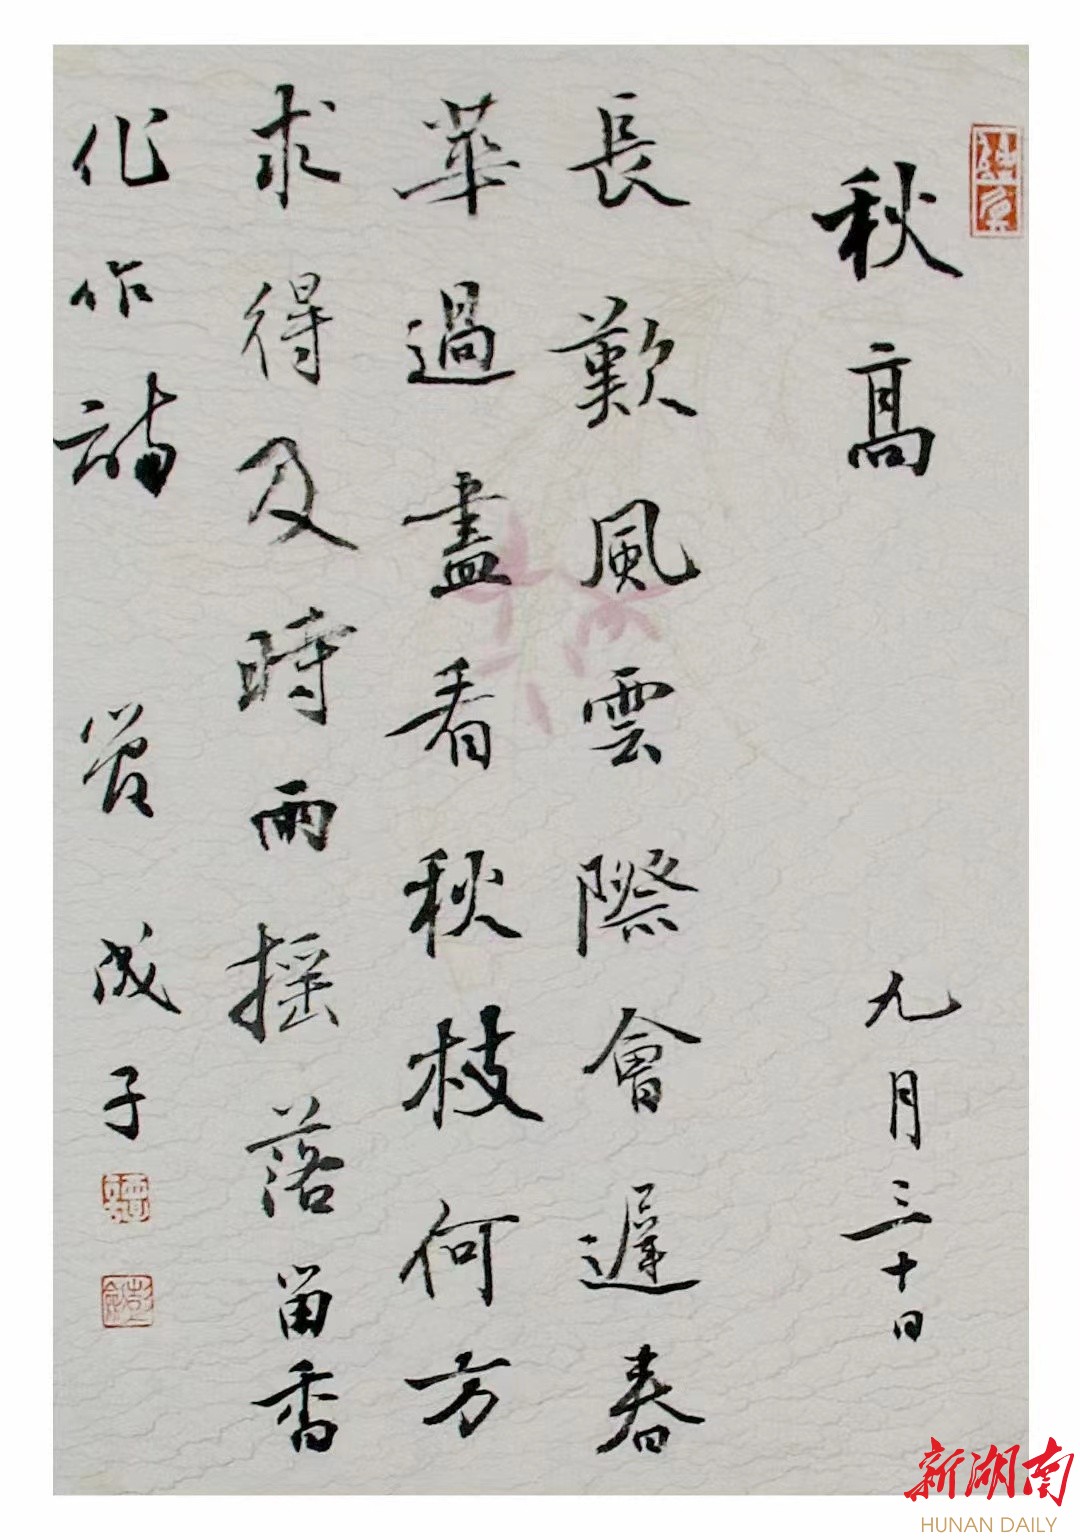 秋高 九月三十日
長歎風雲際會遲春
華過盡看秋枝何方
求得及時雨摇落留香
化作詩 管成子
新湖南
HUNAN DAILY